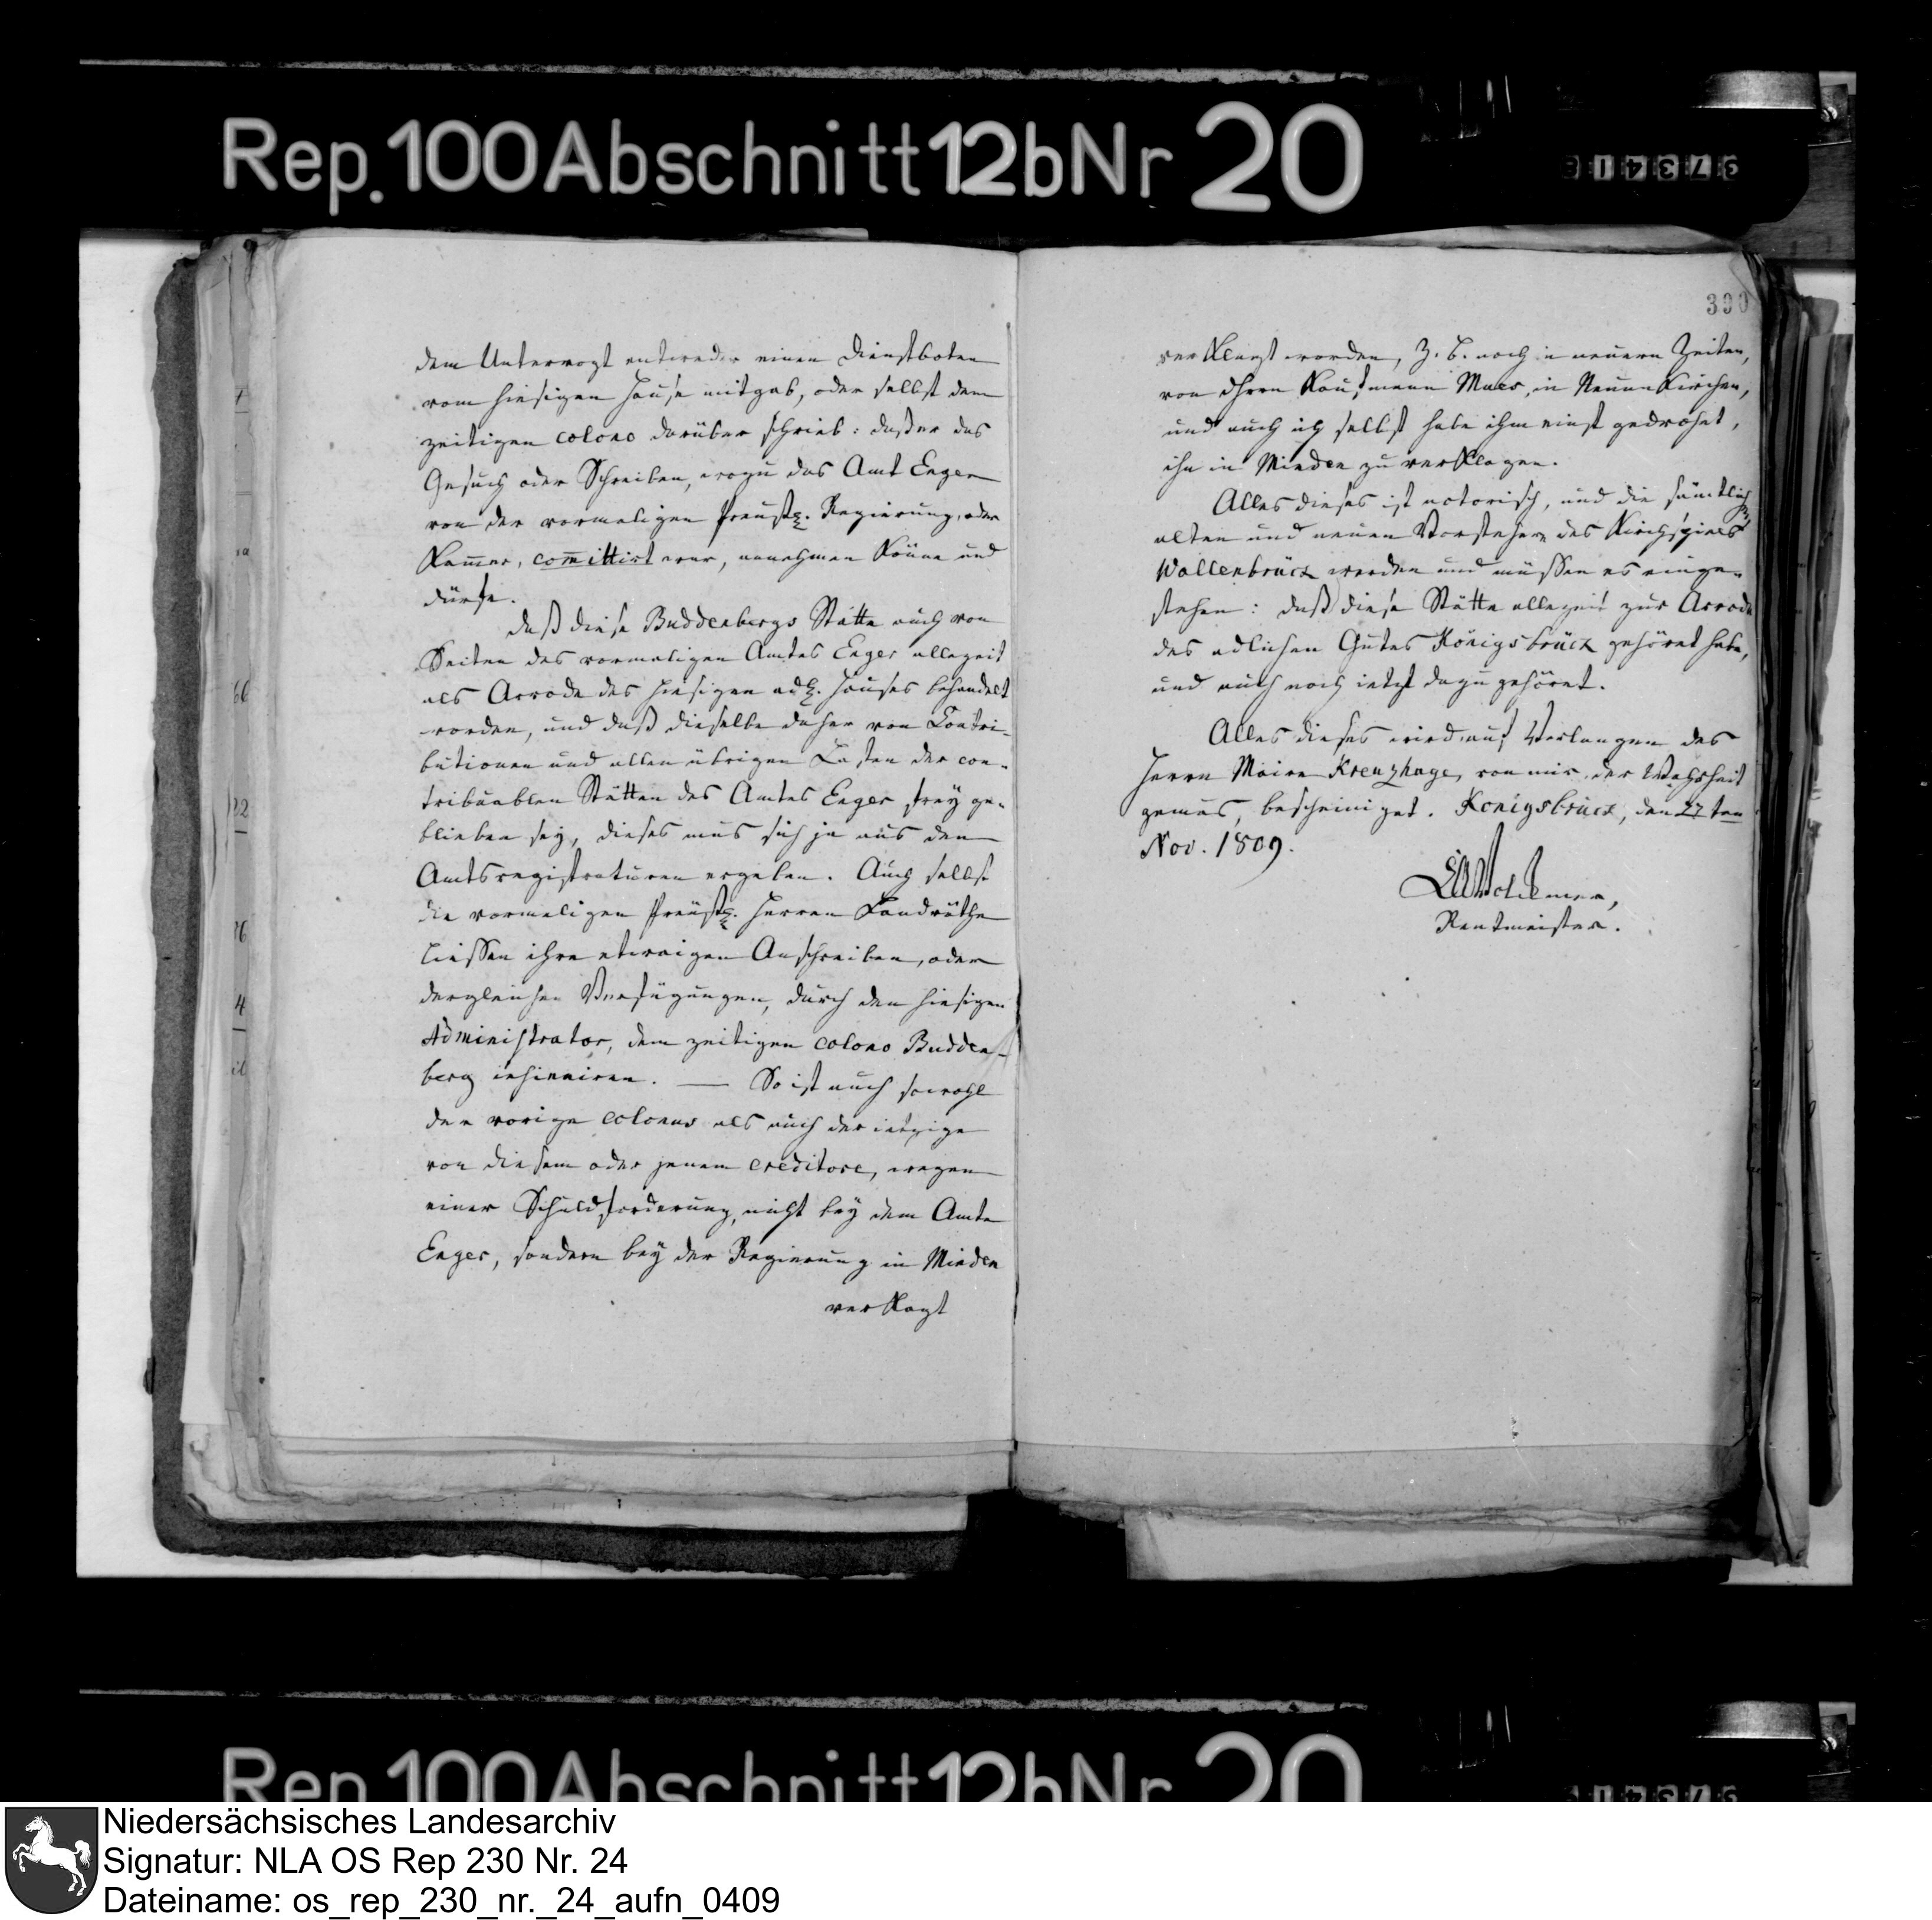 Rep. 100 Abschnitt 12b Nr 20
dem Untervogt entweder einen Dienstboten
vom hiesigen Hause mitgab, oder selbst dem
zeitigen colono darüber schrieb: daß er das
Gesuch oder Schreiben, wozu das Amt Enger
von der vormaligen Preuß. Regierung, oder
Kam̄er, com̄ittirt war, annehmen könne und
dürfe.
Daß diese Buddenbergs Stätte auch von
Seiten des vormaligen Amtes Enger allezeit
als Arrode des hiesigen adl. Hauses behandelt
worden, und daß dieselbe daher von Contri-
butionen und allen übrigen Lasten der con-
tribuablen Stätten des Amtes Enger frey ge-
blieben sey, dieses mus sich ja aus den
Amtsregistraturen ergeben. Auch selbst
die vormaligen Preuß. Herren Landräthe
liessen ihre etwaigen Anschreiben, oder
dergleichen Verfügungen, durch den hiesigen
Administrator, dem zeitigen colono Budden-
berg insinuiren. — So ist auch sowohl
der vorige colonus als auch der ietzige
von diesem oder jenem creditore, wegen
einer Schuldforderung, nicht bey dem Amte
Enger, sondern bey der Regierung in Minden
verklagt
390
verklagt worden, z. B. noch in neuern Zeiten,
von Hrrn Kaufmann Maes, in Neuenkirchen,
und auch ich selbst habe ihm einst gedrohet,
ihn in Minden zu verklagen.
Alles dieses ist notorisch, und die sämtlichen
alten und neuen Vorsteher des Kirchspiels
Wallenbrück werden und müssen es einge-
stehen: daß diese Stätte allezeit zur Arrode
des adlichen Gutes Königsbrück gehöret habe,
und auch noch ietzt dazu gehöret.
Alles dieses wird auf Verlangen des
Herrn Maire Kreuzhage, von mir, der Wahrheit
gemäs, bescheiniget. Königsbrück, den 27ten
Nov. 1809.
Rentmeister.
Rep. 100 Abschnitt 12b Nr 20
Niedersächsisches Landesarchiv
Signatur: NLA OS Rep 230 Nr. 24
Dateiname: os_rep_230_nr._24_aufn_0409